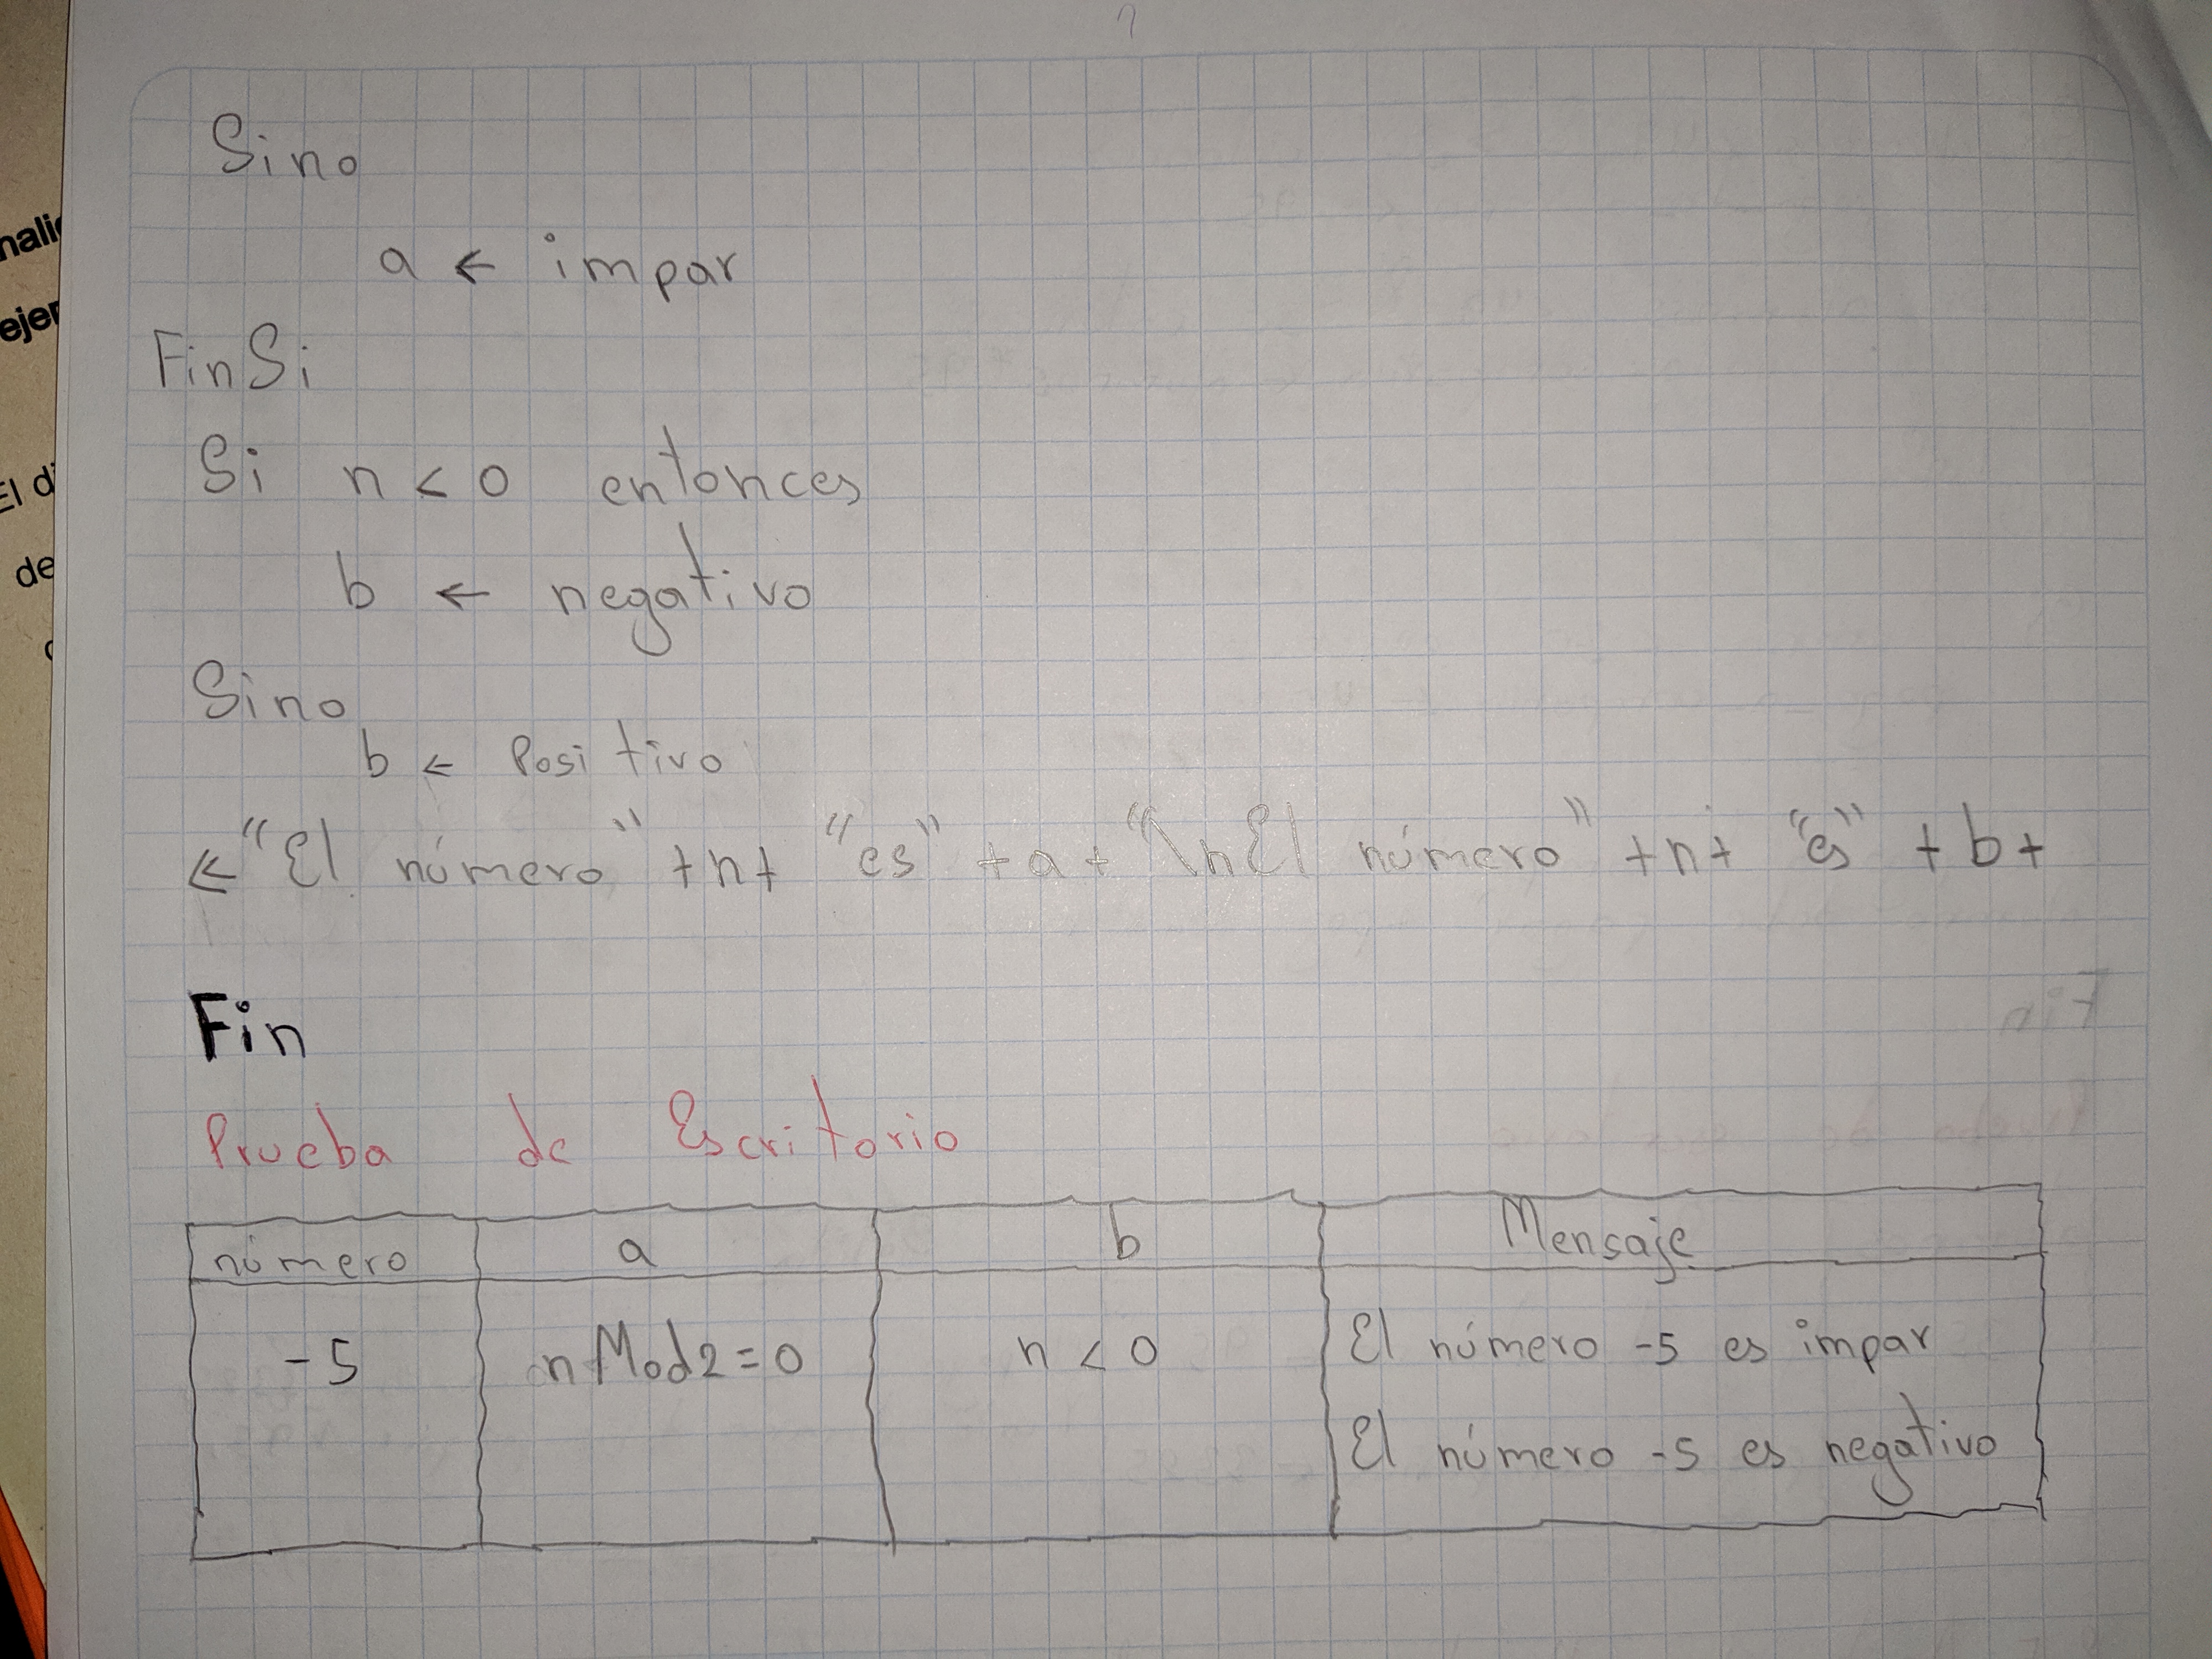 Sino
a ← impar
FinSi
Si n < 0 entonces
b ← negativo
Sino
b ← Positivo
← "El número" +n+ "es" +a+ "\nEl número" +n+ "es" +b+
Fin
Prueba de Escritorio
número a b Mensaje
-5 nMod2=0 n < 0 El número -5 es impar
El número -5 es negativo